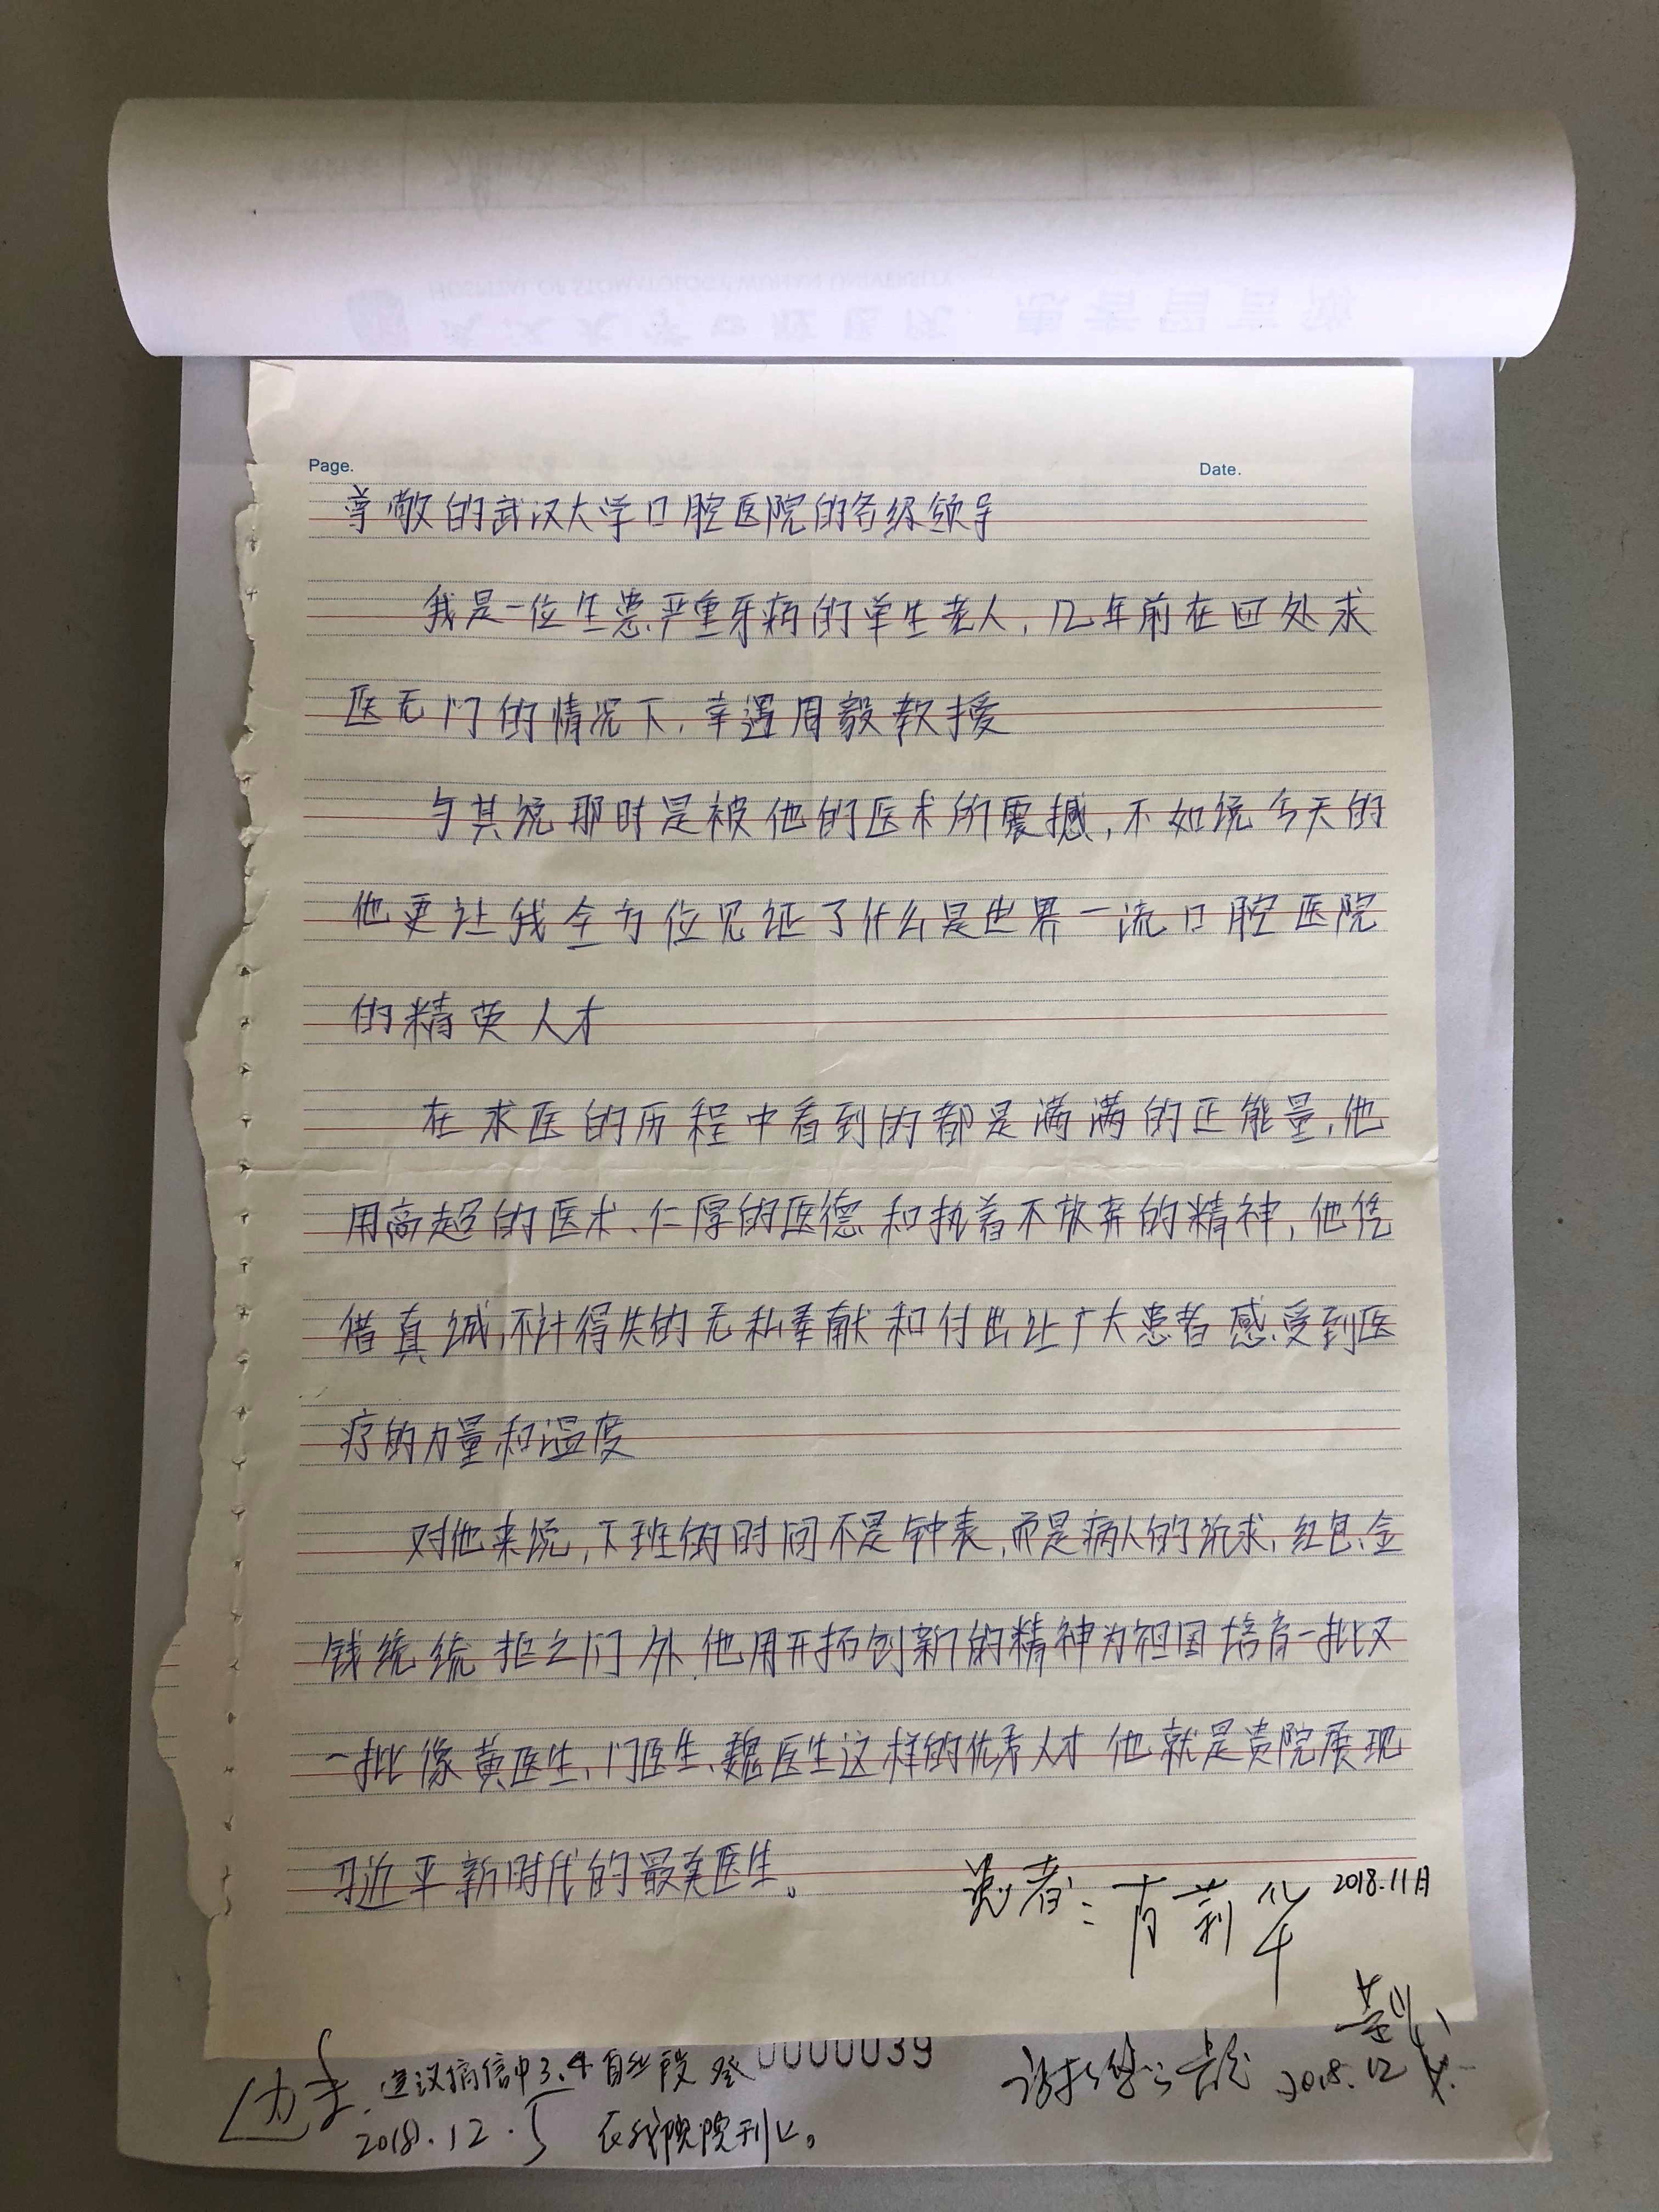 Page. Date.
尊敬的武汉大学口腔医院的各级领导
我是一位生患严重牙病的单生老人，几年前在四处求
医无门的情况下，幸遇周毅教授
与其说那时是被他的医术所震撼，不如说今天的
他更让我全方位见证了什么是世界一流口腔医院
的精英人才
在求医的历程中看到的都是满满的正能量，他
用高超的医术、仁厚的医德和执着不放弃的精神，他凭
借真诚，不计得失的无私奉献和付出让广大患者感受到医
疗的力量和温度
对他来说，下班的时间不是钟表，而是病人的诉求，红包、金
钱统统拒之门外，他用开拓创新的精神为祖国培育一批又
一批像黄医生、门医生、魏医生这样的优秀人才 他就是贵院展现
习近平新时代的最美医生。
患者：肖莉华 2018.11月
0000039
建议摘信中3、4自然段登
2018.12.5 在我院院刊上。
2018.12